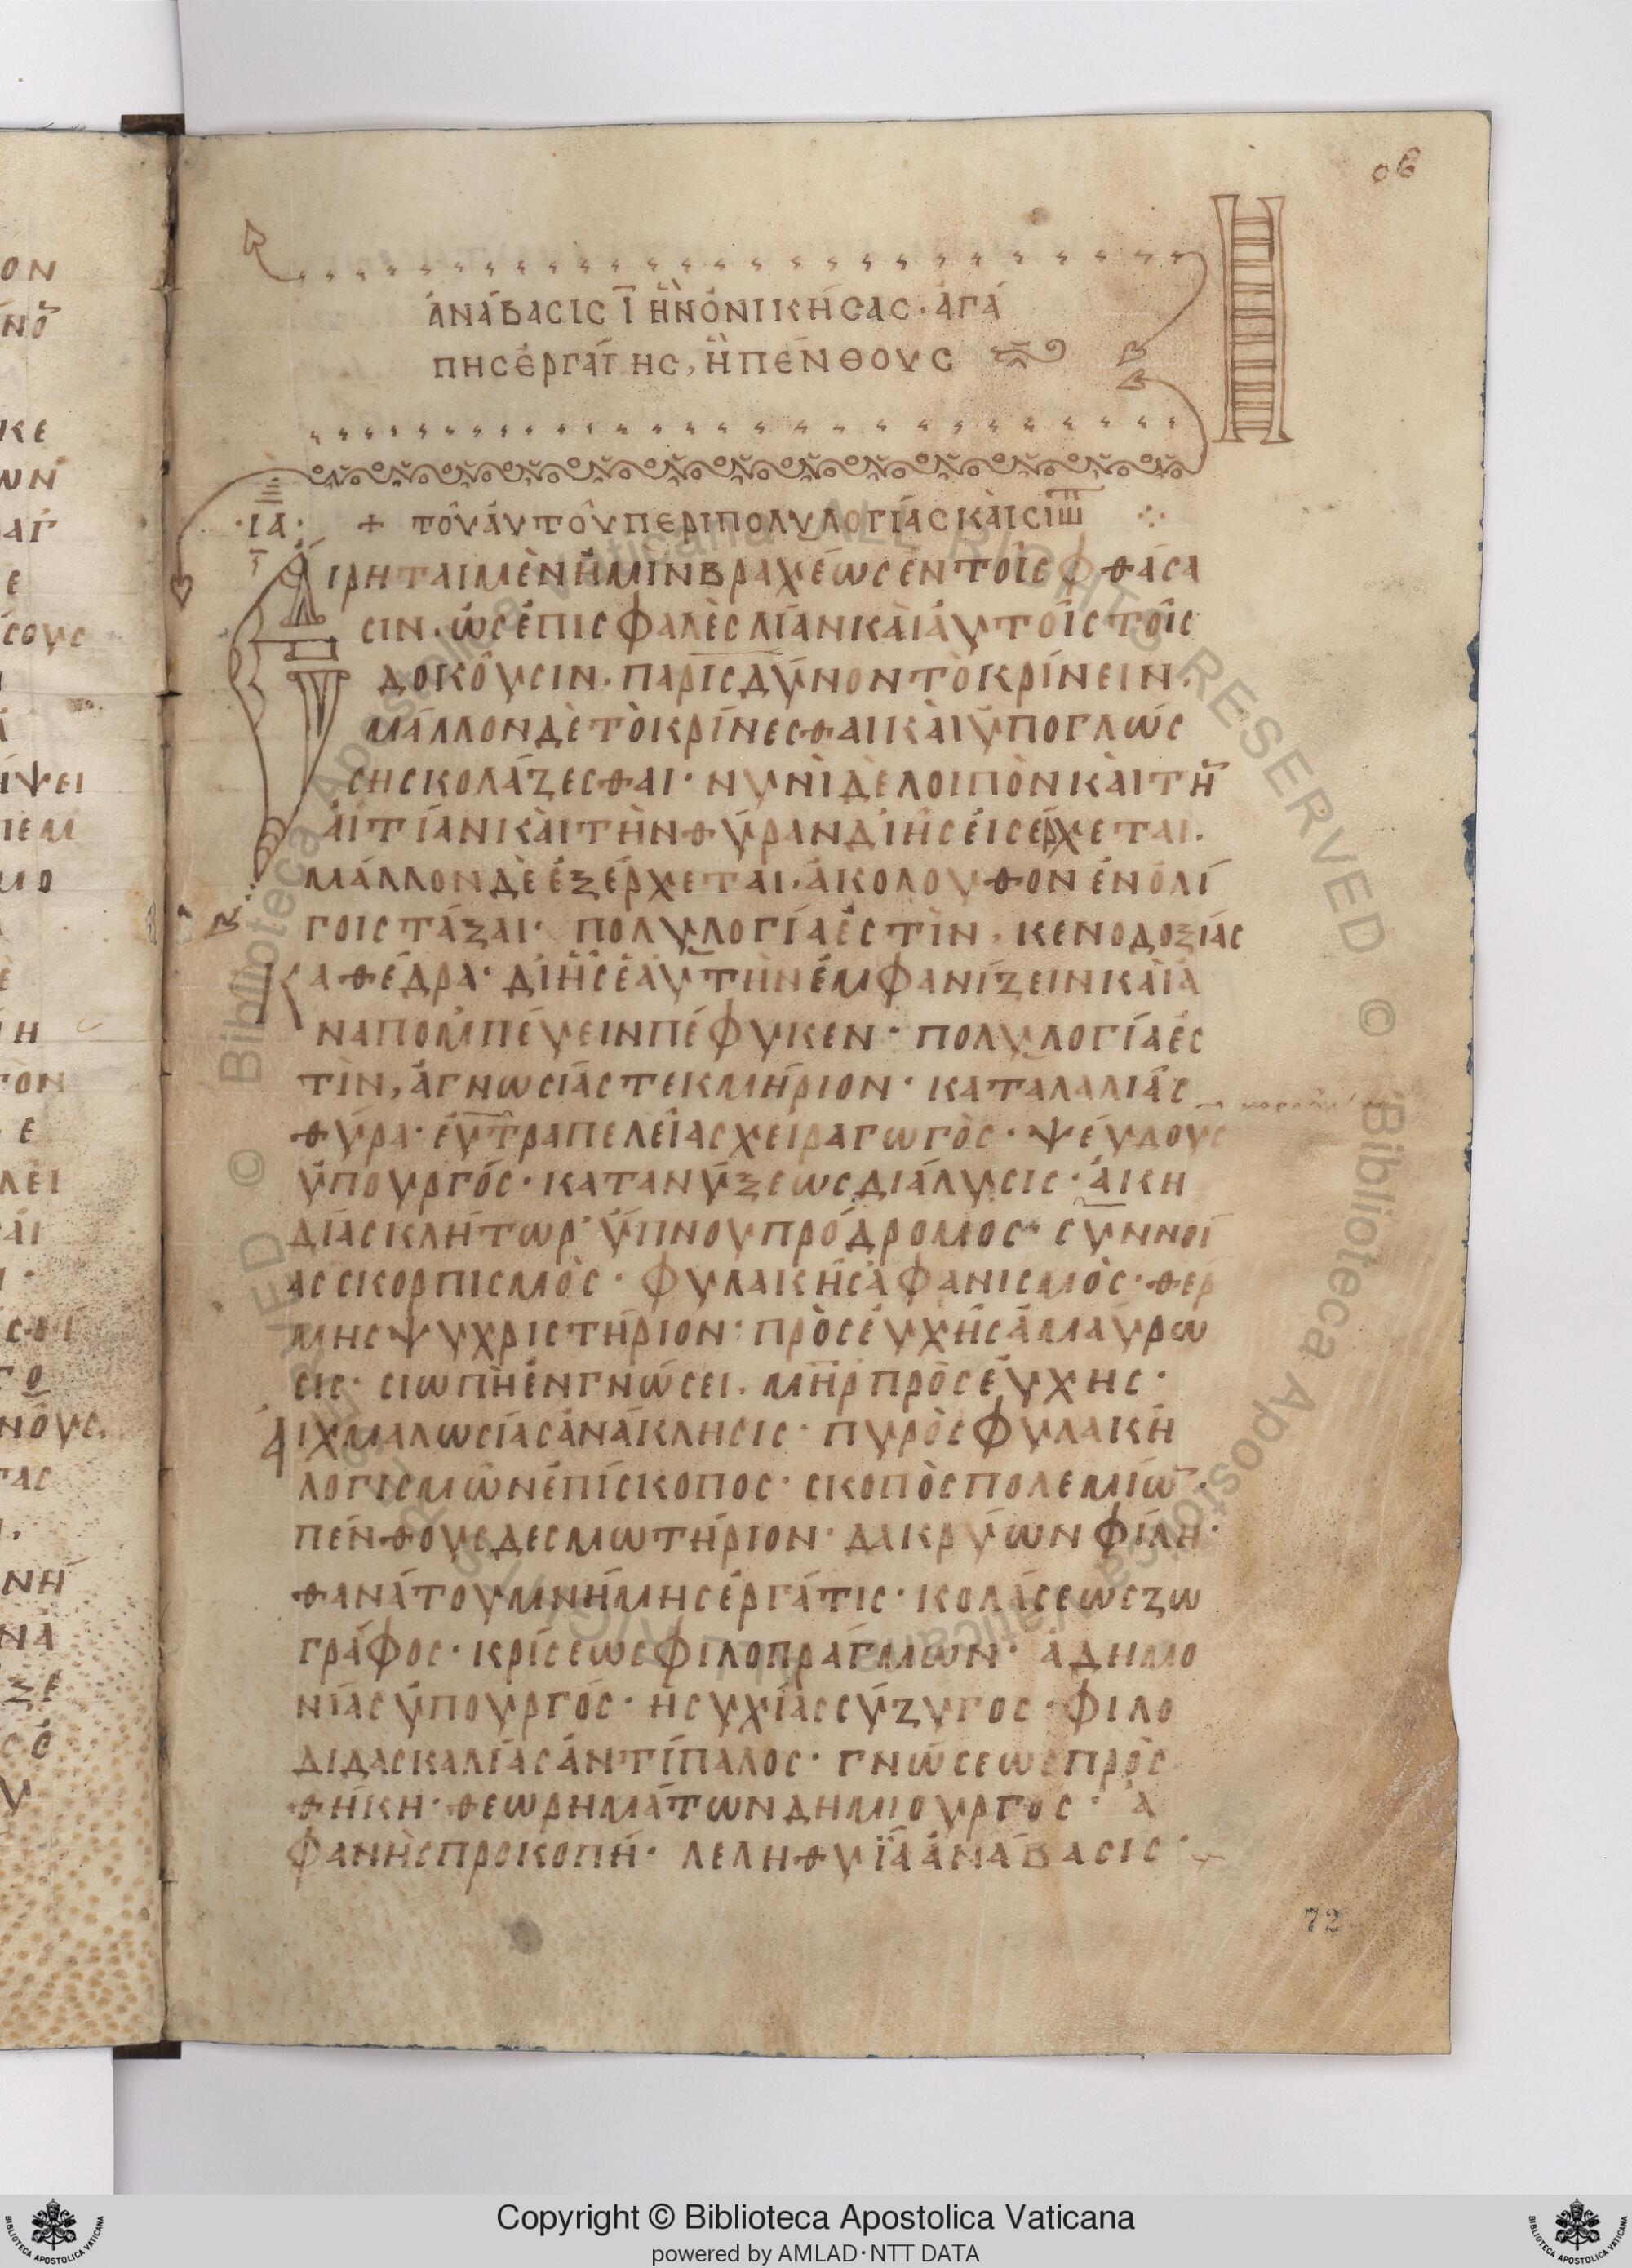 οβ
ἀνάβασις ῑ ἣν ὁ νικήσας· ἀγά
πης ἐργάτης, ἢ πένθους
·ΙΑ· + τοῦ ἀυτοῦ περὶ πολυλογίας κὰι σιωπ
Ἐίρηται μὲν ἡμῖν βραχέως ἐν τοῖς φθάσα
σιν· ὡς ἐπισφαλὲς λίαν κὰι ἀυτοῖς τοῖς
δοκοῦσιν· παρισδῦνον τὸ κρίνειν·
μᾶλλον δὲ τὸ κρίνεσθαι κὰι ὑπὸ γλώς
σης κολάζεσθαι· νυνὶ δὲ λοιπὸν κὰι τὴ̅
ἀιτίαν κὰι τὴν θύραν δι ἧς ἐισέρχεται·
μᾶλλον δὲ ἐξέρχεται· ἀκόλουθον ἐν ὀλί
γοις τάξαι· πολυλογία ἐστὶν, κενοδοξίας
Καθέδρα· δι ἧς ἑαυτὴν ἐμφανίζειν κὰι ἀ
ναπομπέυειν πέφυκεν· πολυλογία ἐς
τὶν, ἀγνωσίας τεκμήριον· καταλαλιᾶς
θύρα· ἐυτραπελείας χειραγωγὸς· ψέυδους
ὑπουργός· κατανύξεως διάλυσις· ἀκη
δίας κλήτωρ· ὕπνου πρόδρομος· συννοί
ας σκορπισμὸς· φυλακῆς ἀφανισμὸς· θέρ
μης ψυχριστήριον· πρὸσευχῆς ἀμάυρω
σις· σιωπὴ ἐν γνώσει· μη̅ρ πρὸσευχῆς·
Ἀιχμαλωσίας ἀνάκλησις· πυρὸς φυλακή
λογισμῶν ἐπίσκοπος· σκοπὸς πολεμίω̅·
πένθους δεσμωτήριον· δακρύων φίλη·
θανάτου μνήμης ἐργάτις· κολάσεως ζω
γράφος· κρίσεως φιλοπράγμων· ἀδημο
νίας ὑπουργός· ἡσυχίας σύζυγος· φιλο
διδασκαλίας ἀντίπαλος· γνώσεως προς
θήκη· θεωρημάτων δημιουργὸς· ἀ
φανὴς προκοπή· λεληθυῖα ἀνάβασις·
72
Copyright © Biblioteca Apostolica Vaticana
powered by AMLAD·NTT DATA